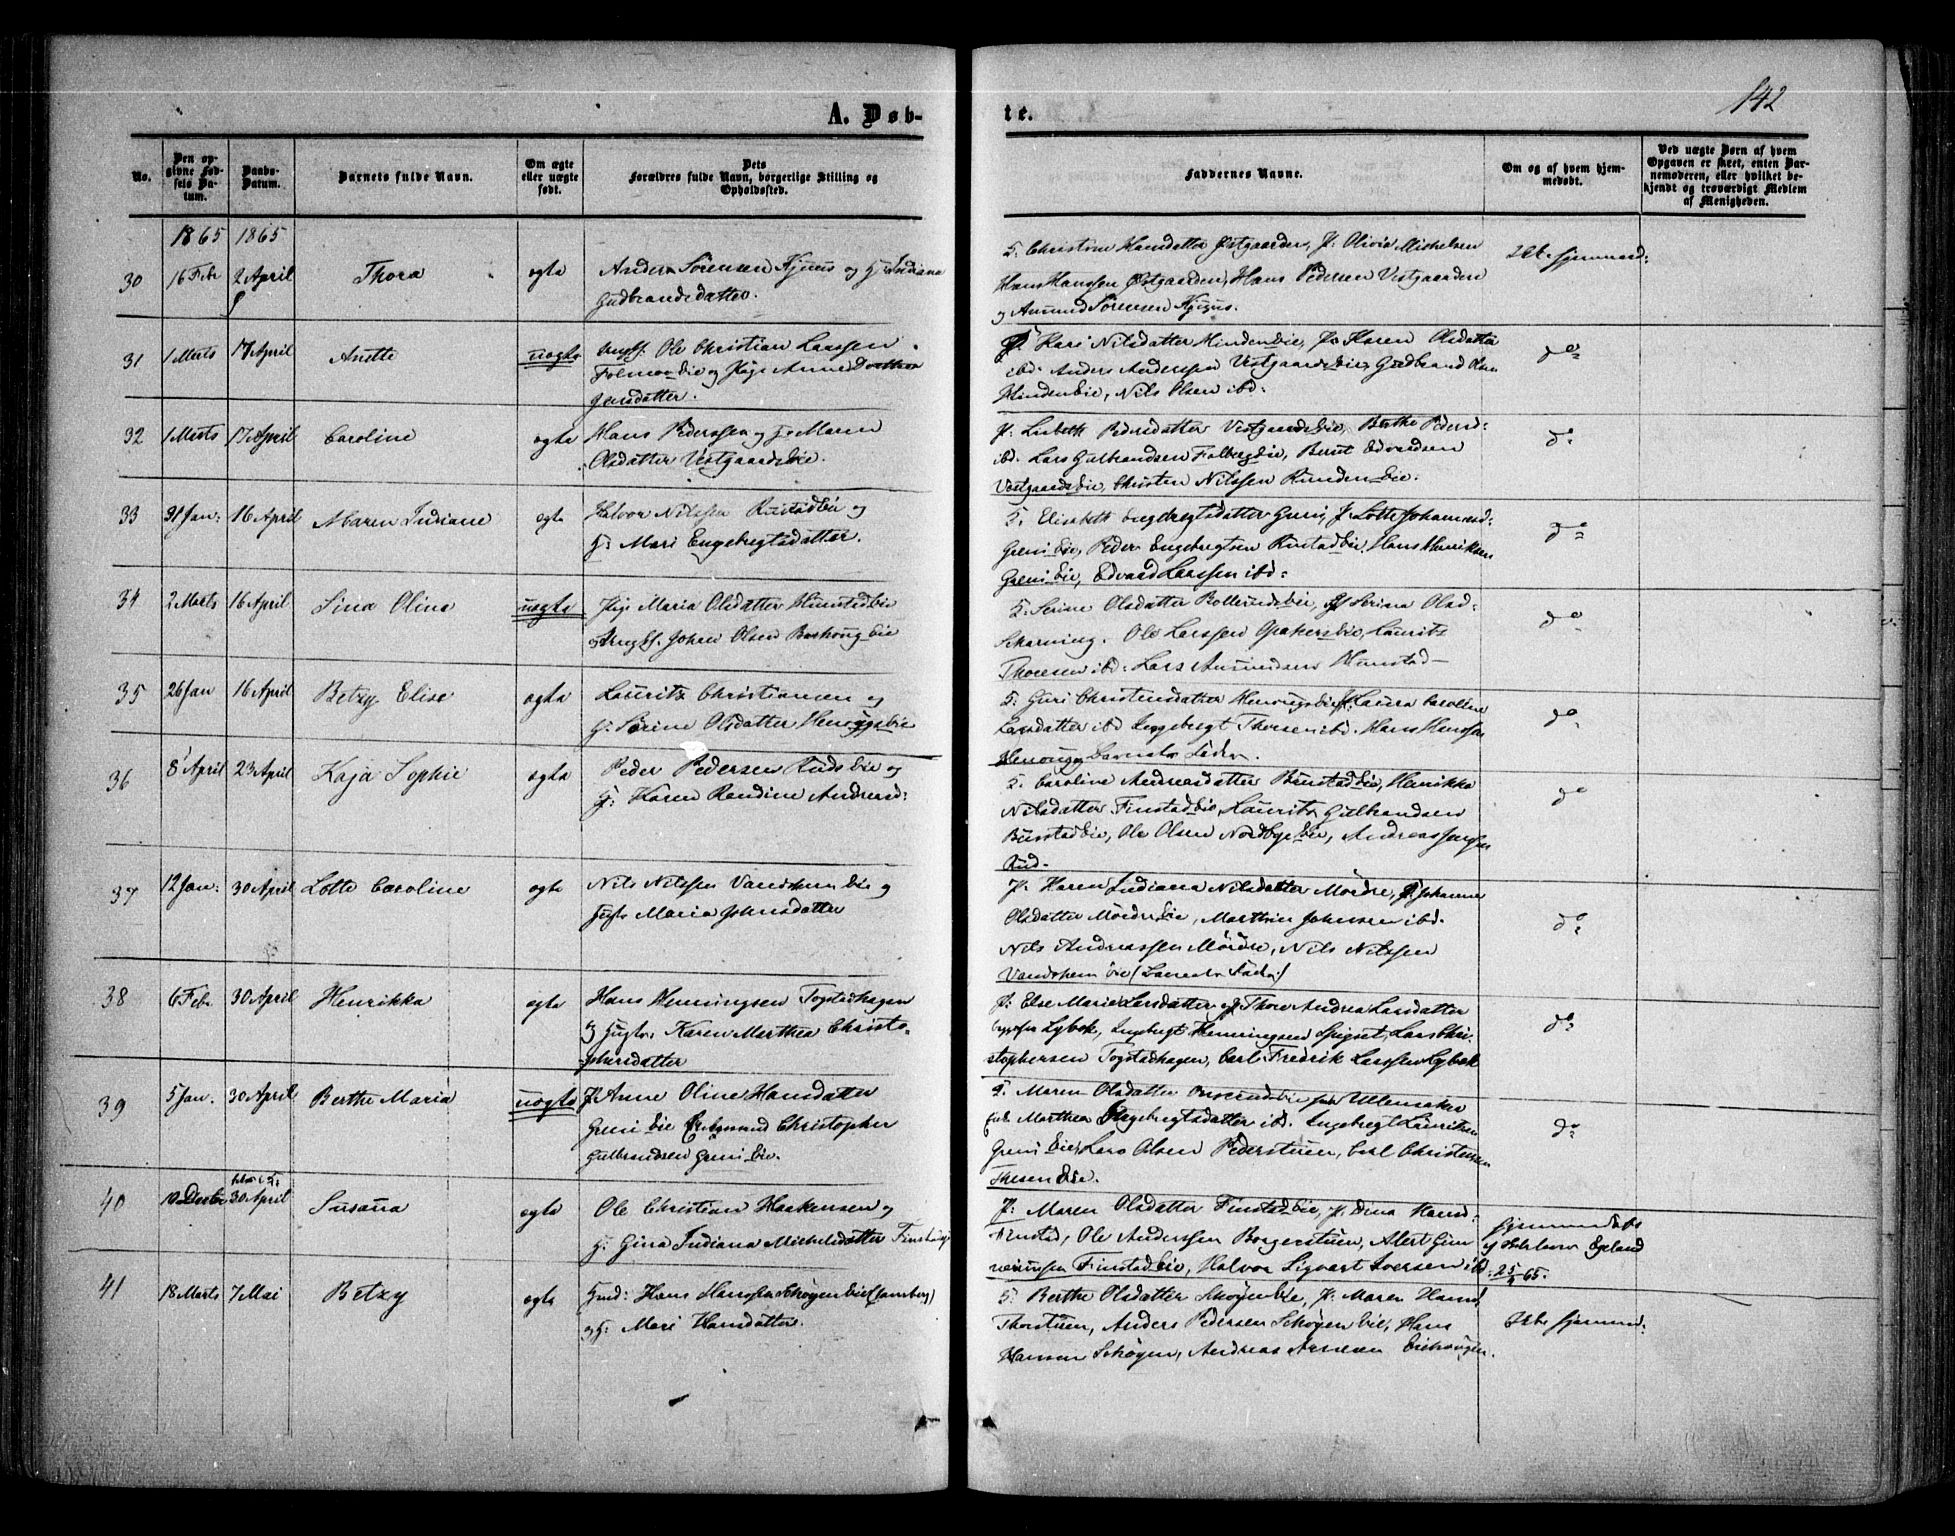 142
A. Døb-
te.
No.
Den opgivne Fødsels Datum.
Daabs-Datum.
Barnets fulde Navn.
Om ægte eller uægte født.
Dets Forældres fulde Navn, borgerlige Stilling og Opholdssted.
Faddernes Navne.
Om og af hvem hjemmedøbt.
Ved uægte Børn af hvem Opgaven er skeet, enten Barnemoderen, eller hvilket bekjendt og troværdigt Medlem af Menigheden.
1865 1865
30 16 Febr 2 April Thora ægte Anders Sørensen og H: Indiana
Gudbrandsdatter.
G. Christine Hansdatter Østgaarden, P: Olivia Michelsen
Hans Hanssen Østgaarden, Hans Pedersen Vestgaarden
og Amund Sørensen
31 1 Marts 17 April Anette uægte Ungk. Ole Christian Larssen
og Pige Anne Dorthea
Jensdatter.
P: Kari Nilsdatter Hindenbie, P: Karen Olsdatter
ibd. Anders Anderssen Vestgaardsbie, Gudbrand Olsen
Hindenbie, Nils Olsen ibd:
do
32 1 Marts 17 April Caroline ægte Hans Pederssen og H: Maren
Olsdatter Vestgaardsbie.
P: Lisbeth Pedersdatter Vestgaardsbie, Berthe Pedersd:
ibd. Lars Gulbrandsen Folbergbie, Bernt Edvardsen
Vestgaardsbie, Christen Nilssen Rundenbie.
do
33 31 Jan: 16 April Maren Indiane ægte Halvor Nilssen Rustadbie og
H: Mari Engebregtsdatter.
G. Elisabeth Engebregtsdatter Greni, P. Lotte Johannesd:
Grenibie, Peder Engebregtsen Rustadbie, Hans Henriksen
Grenibie, Edvard Larssen ibd:
do
34 2 Marts 16 April Lina Olina uægte Pige Maria Olsdatter Hunstadbie
og Ungk. Johan Olsen
G. Serine Olsdatter P. Serina Olsd:
Skarning. Ole Larssen Opakersbie, Lauritz
Thoresen ibd: Lars Amundsen Hunstad
do
35 26 Jan 16 April Betzy Elise ægte Lauritz Christiansen og
H: Serine Olsdatter
G. Guri Christensdatter Laura Caroline
Larsdatter ibd Ingebregt Thoresen ibd. Hans Hanssen
Barnets Fader.
do
36 8 April 23 April Kaja Sophie ægte Peder Pedersen Rudsbie og
H: Karen Randine Andersd:
G. Caroline Andreasdatter Bunstadbie, Henrikka
Nilsdatter Finstadbie, Lauritz Gulbrandsen
Bunstadbie, Ole Olsen Nordbyebie, Andreas Jensen
Rud.
do
37 12 Jan: 30 April Lotte Caroline ægte Nils Nilssen Vandshembie og
H: Maria Johnsdatter
P: Karen Indiana Nilsdatter Mørdre, P. Johanne
Olsdatter Mørdrebie, Marthin Johnsen ibd.
Nils Andreassen Mørdre, Nils Nilssen
Vandshembie (Barnets Fader)
do
38 6 Febr 30 April Henrikka ægte Hans Henningsen Togstadhagen
og H: Karen Marthea Christo-
phersdatter
P: Else Marie Larsdatter og P: Thore Andrea Larsdatter
Lybek, Ingebregt Henningsen Spigset, Lars Chri-
stophersen Togstadhagen, Carl Fredrik Larssen Lybek
do
39 5 Jan. 30 April Berthe Maria uægte P. Anne Oline Hansdatter
Grenibie Christopher
Gulbrandsen Grenibie.
G. Maren Olsdatter Ullensaker
Marthea Engebregtsdatter ibd. Ingebregt Lauritsen
Grenibie, Lars Olsen Pederstuen, Carl Christensen
do
40 30 April Susana ægte Ole Christian Haakensen og
H: Gina Indiana Michelsdatter Finstadbie
P: Maren Olsdatter Finstadbie, P: Dina Hansd:
Finstad, Ole Anderssen Borgerstuen, Alert Gun
Finstadbie, Halvor Sigvart Iversen ibd:
hjemmedøbt
af Egeland
25/2 65.
41 18 Marts 7 Mai Betzy ægte Gmd: Hans Hanssen Schøyenbie
og H: Mari Hansdatter.
G. Berthe Olsdatter Schøyenbie, P: Maren Hansd:
Thorstuen, Anders Pedersen Schøyenbie, Hans
Hansen Schøyen, Andreas
Ikke hjemmed: